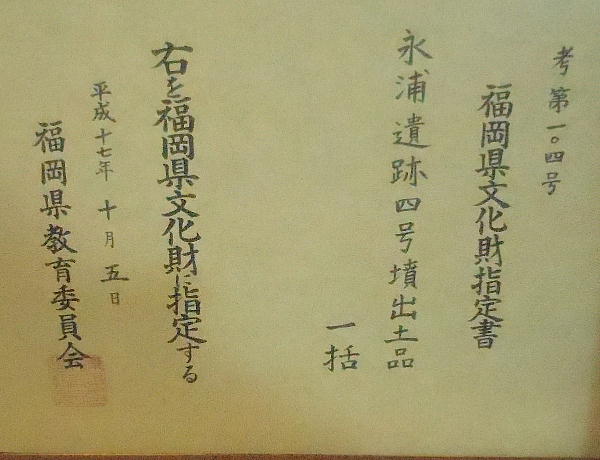 考第一〇四号
福岡県文化財指定書
永浦遺跡四号墳出土品
一括
右を福岡県文化財に指定する
平成十七年十月五日
福岡県教育委員会